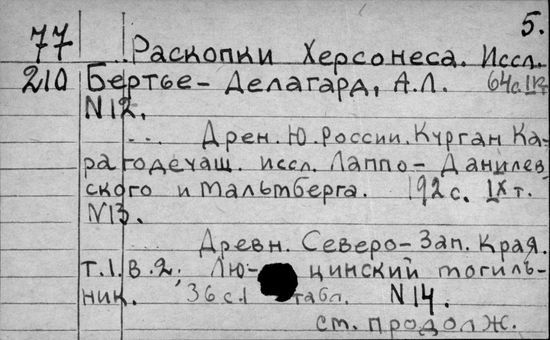 5.
77 ... Раскопки Херсонеса. Иссл.
210 Бертье-Делагард, А.Л. 64с.
N12.
... Древн. Ю. России. Курган Ка-
рагодечащ. иссл. Лаппо-Данилев
ского и Мальмберга. 192с. IX т.
N13.
Древн. Северо-Зап. Края.
т.1. в.2; Лю- цинский могиль-
ник. 36с.1 табл. N14.
см. продолж.